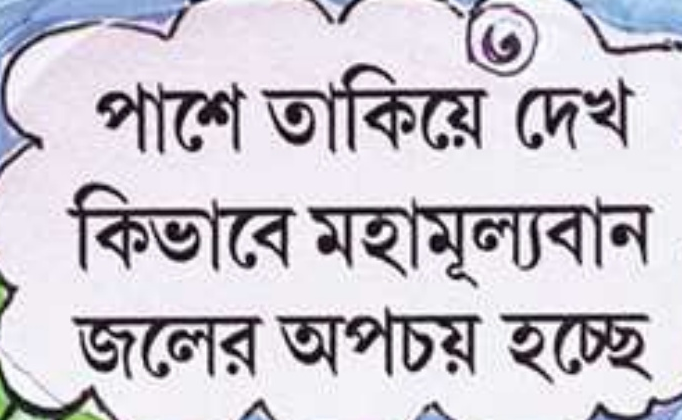 ৩
পাশে তাকিয়ে দেখ
কিভাবে মহামূল্যবান
জলের অপচয় হচ্ছে